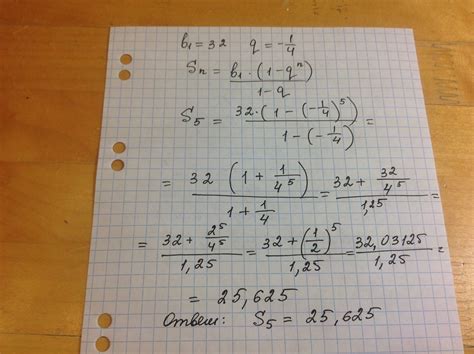 b₁ = 32 q = -1/4
Sₙ = b₁·(1-qⁿ)/1-q
S₅ = 32·(1-(-1/4)⁵)/1-(-1/4) =
= 32 (1+1/4⁵)/1+1/4 = 32+32/4⁵/1,25 =
= 32+2⁵/4⁵/1,25 = 32+(1/2)⁵/1,25 = 32,03125/1,25 =
= 25,625
Ответ: S₅ = 25,625